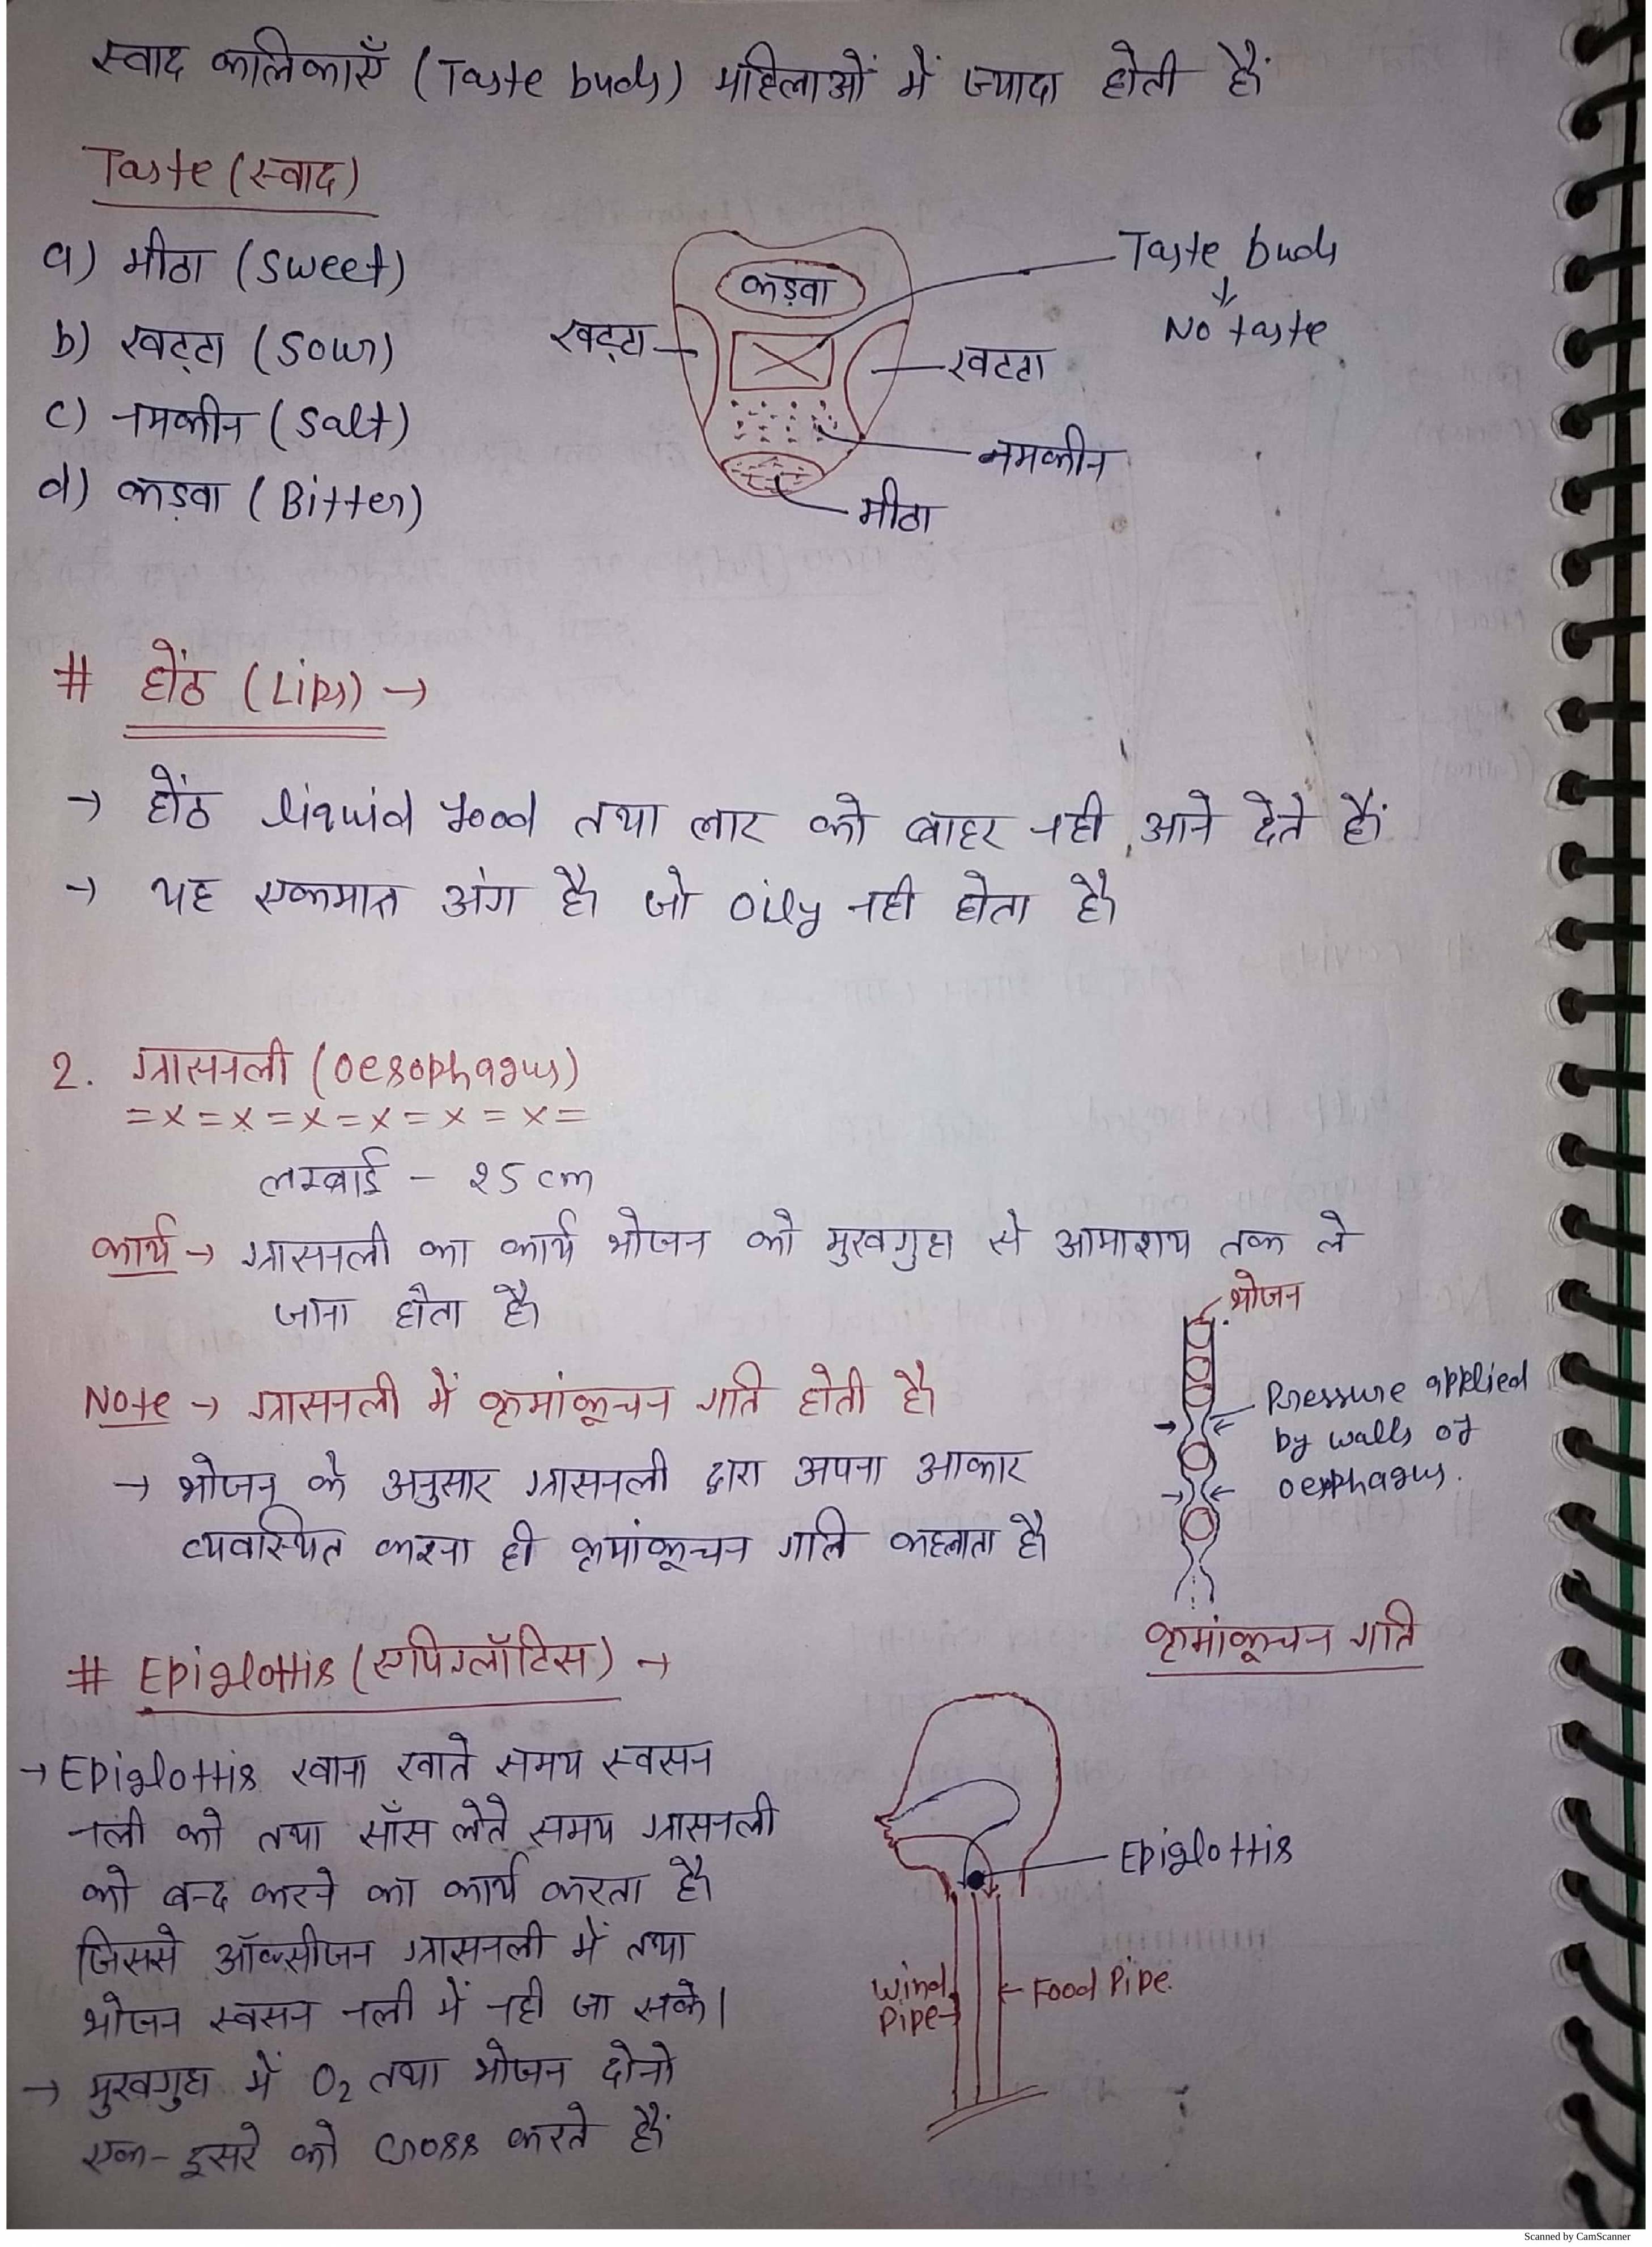 स्वाद कालिकाएँ (Taste buds) महिलाओं में ज्यादा होती हैं
Taste (स्वाद)
a) मीठा (Sweet)
b) खट्टा (Sour)
c) नमकीन (Salt)
d) कड़वा (Bitter)
कड़वा
Taste buds
↓
No taste
खट्टा
खटटा
नमकीन
मीठा
# होंठ (Lips) →
→ होंठ liquid food तथा लार को बाहर नही आने देते हैं
→ यह एकमात्र अंग है जो oily नही होता है
2. ग्रासनली (Oesophagus)
=x=x=x=x=x=x=
लम्बाई - 25 cm
कार्य → ग्रासनली का कार्य भोजन को मुखगुहा से आमाशय तक ले
जाना होता है
भोजन
Note → ग्रासनली में क्रमांकूचन गति होती है
→ भोजन के अनुसार ग्रासनली द्वारा अपना आकार
व्यवस्थित करना ही क्रमांकूचन गति कहलाता है
Pressure applied
by walls of
oesphagus.
क्रमांकूचन गति
# Epiglottis (एपिग्लॉटिस) →
→ Epiglottis खाना खाते समय स्वसन
नली को तथा साँस लेते समय ग्रासनली
को बन्द करने का कार्य करता है
जिससे ऑक्सीजन ग्रासनली में तथा
भोजन स्वसन नली में नही जा सके।
→ मुखगुहा में O2 तथा भोजन दोनो
एक-दूसरे को cross करते हैं
Epiglottis
Wind
Pipe
Food Pipe.
Scanned by CamScanner